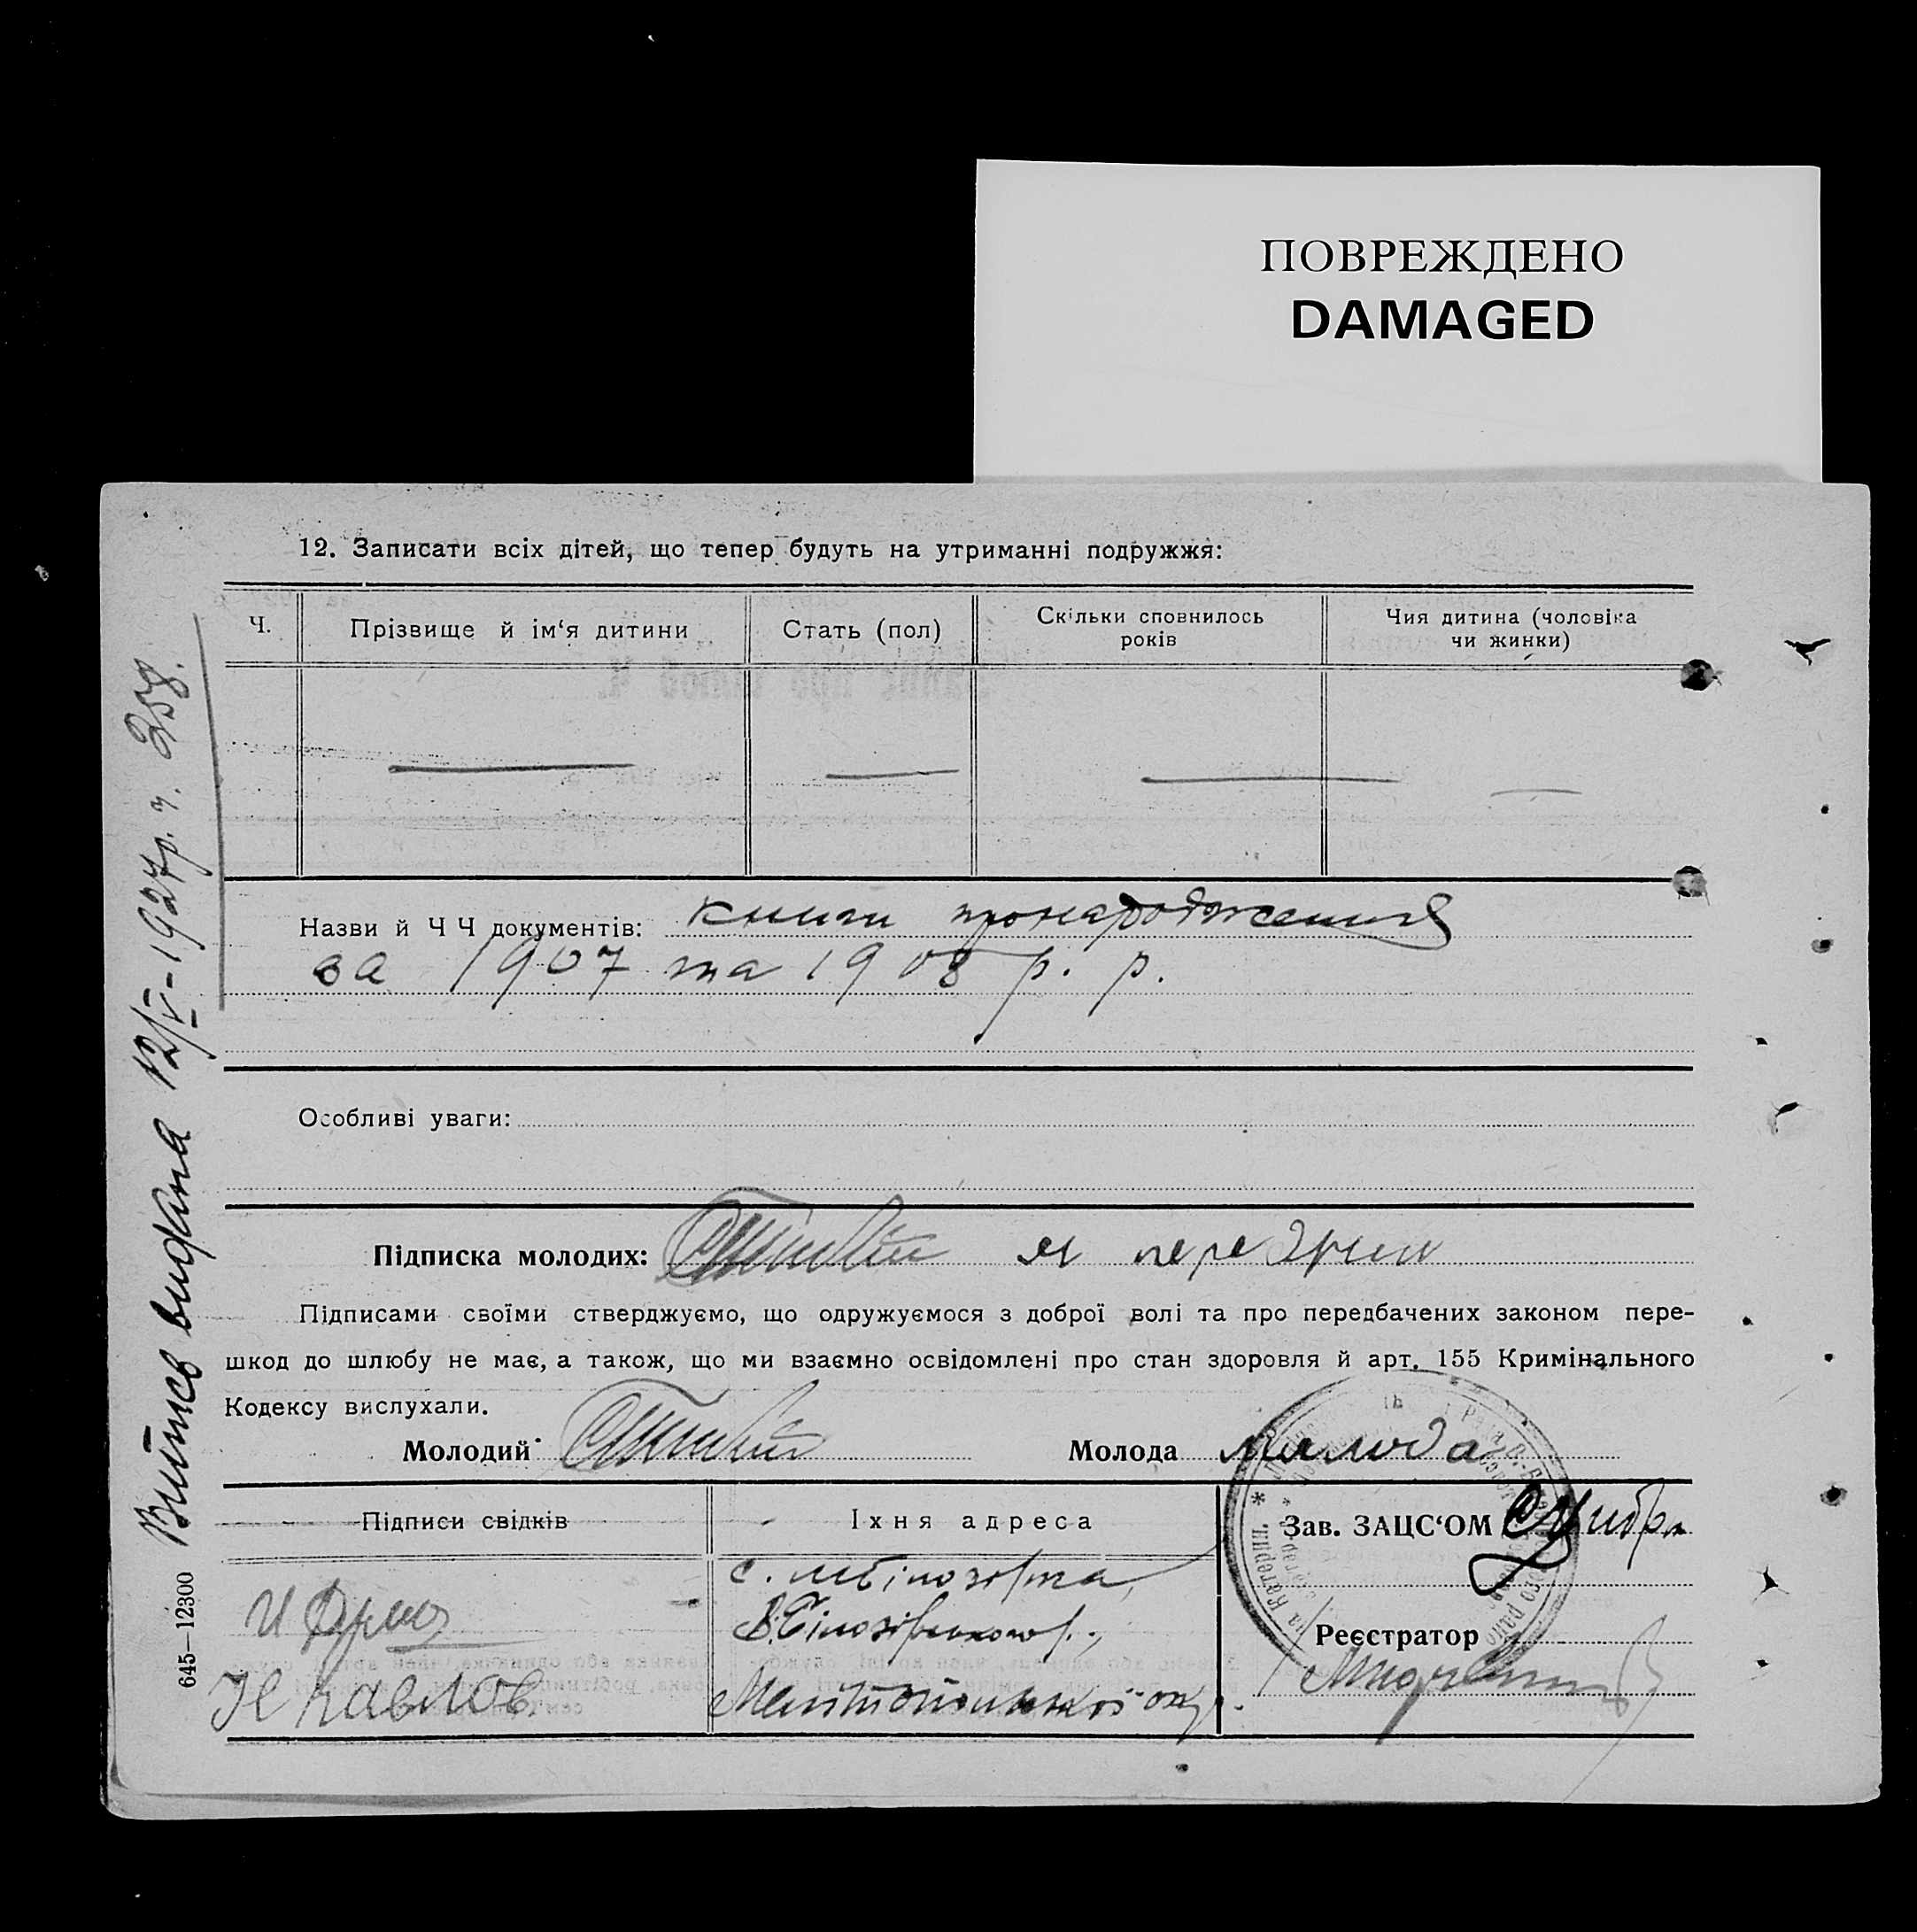 ПОВРЕЖДЕНО
DAMAGED
12. Записати всіх дітей, що тепер будуть на утриманні подружжя:
Ч.
Прізвище й ім‘я дитини
Стать (пол)
Скільки сповнилось
років
Чия дитина (чоловіка
чи жинки)
Назви й Ч Ч документів: книги про народження
за 1907 та 1908 р. р.
Особливі уваги:
Підписка молодих:
Підписами своїми стверджуємо, що одружуємося з доброї волі та про передбачених законом пере-
шкод до шлюбу не має, а також, що ми взаємно освідомлені про стан здоровля й арт. 155 Кримінального
Кодексу вислухали.
Молодий
Молода
Підписи свідків
Їхня адреса
Зав. ЗАЦС‘ОМ
с.
В. Білозірського р.,
Мелітопільської окр.
Реєстратор
Н Павлов
Витись видана 12/V-1927р. ч. 258.
645—12300